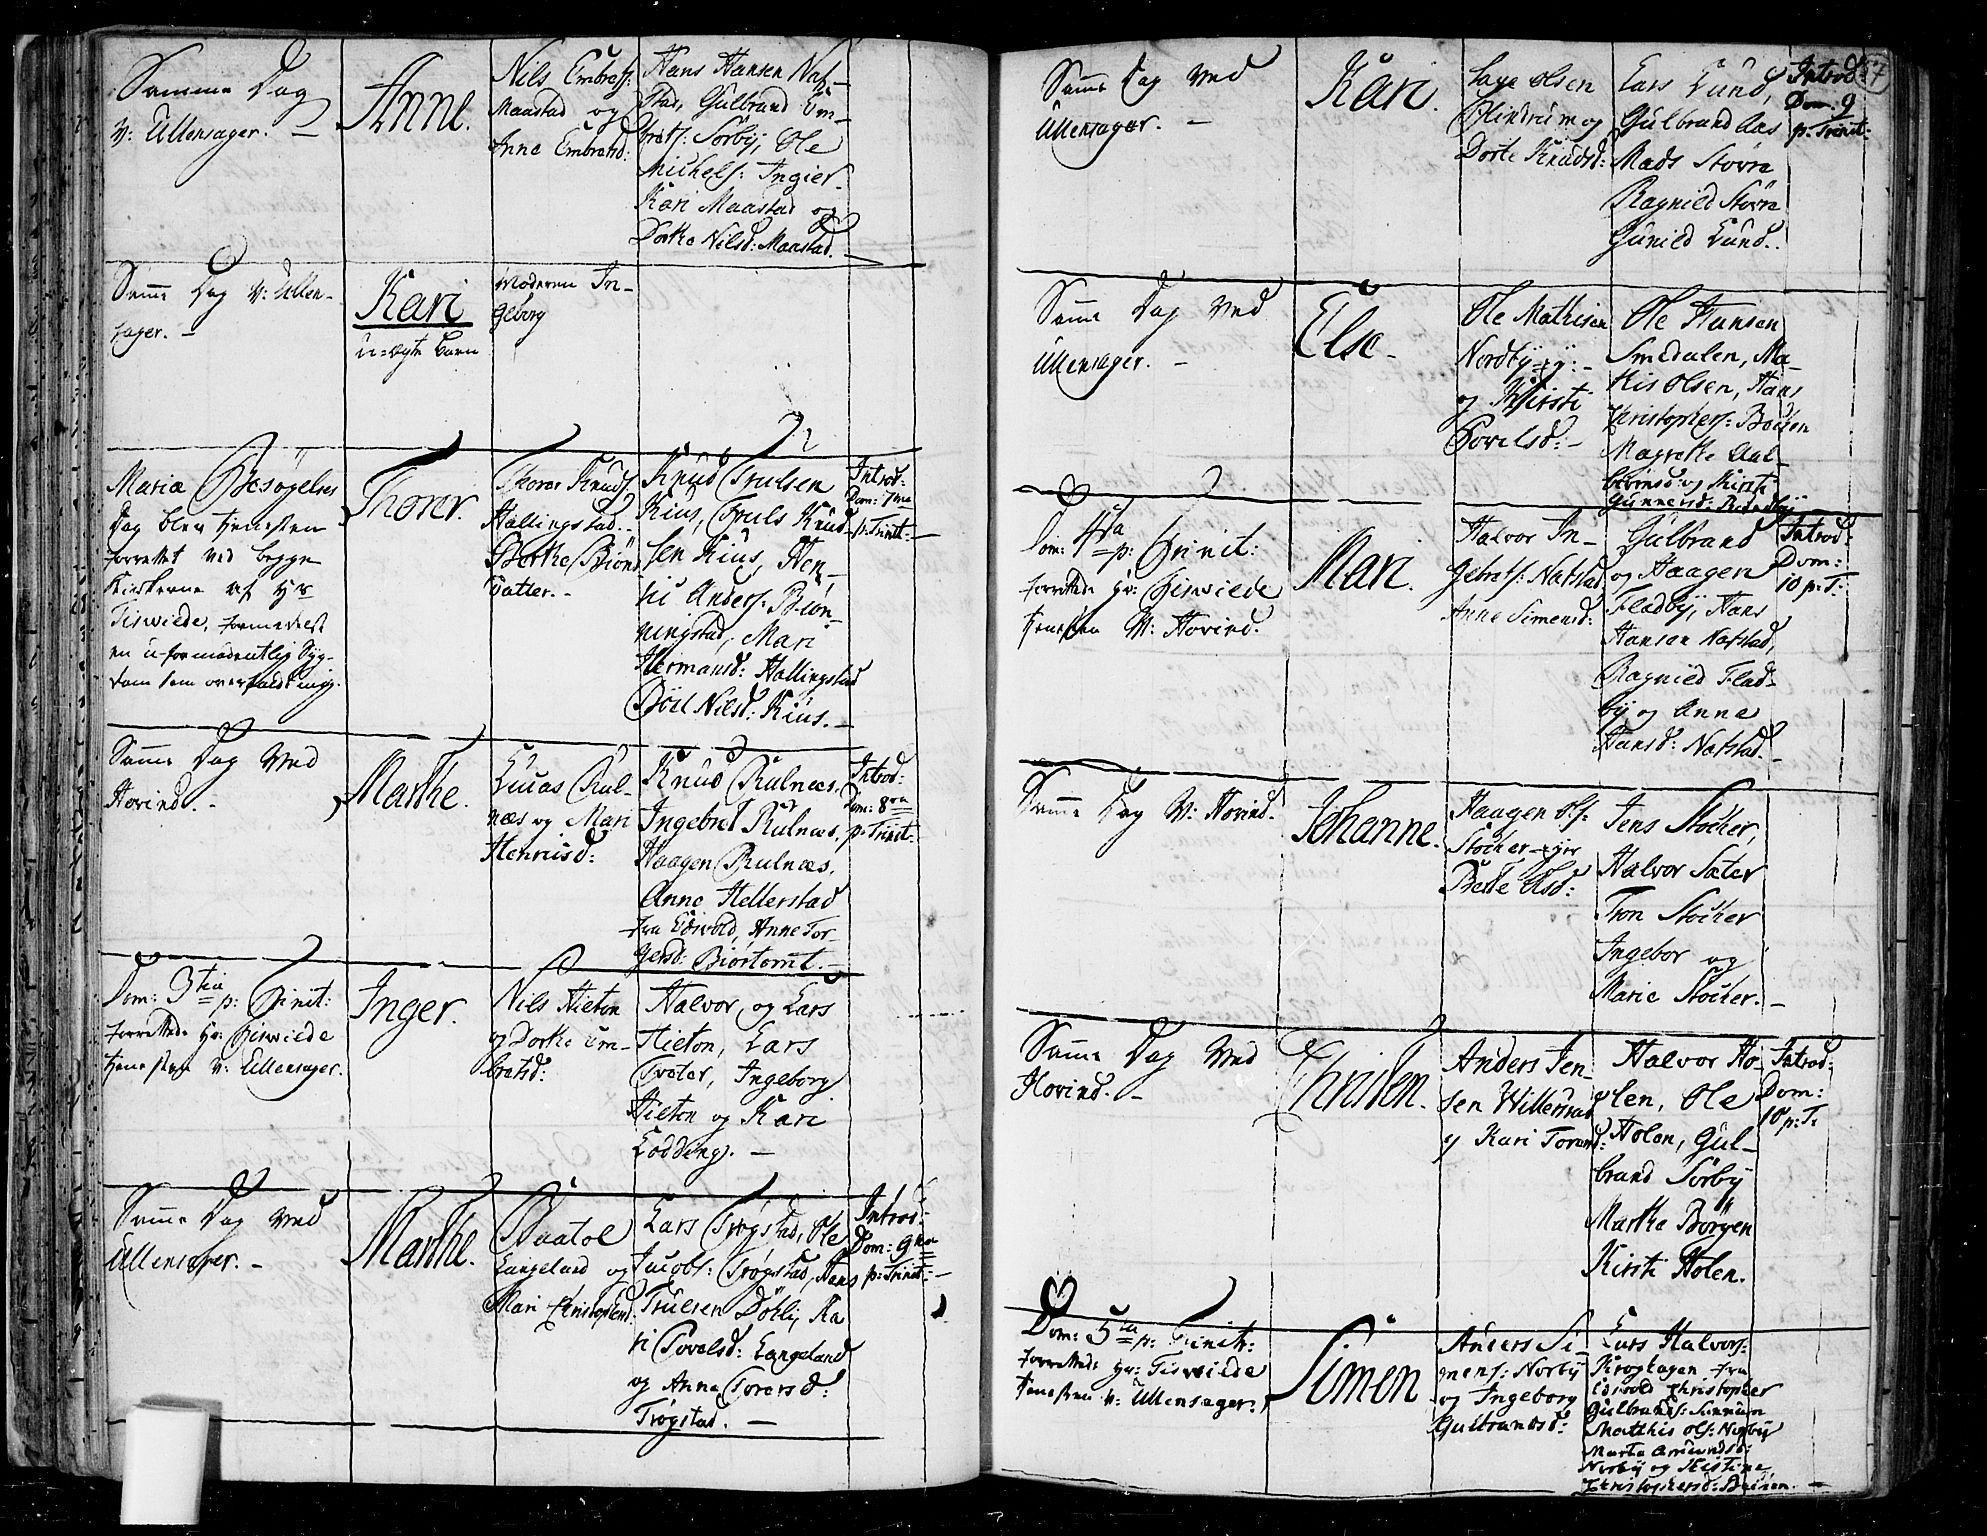 Samme Dag
v: Ullensager. —
Anne.
Nils Embretss:
Maastad og
Anne Embretsd:
Hans Hansen Nat-
stad, Gulbrand Em-
bretss: Sörby, Ole
Michelss: Ingier.
Kari Maastad og
Dorthe Nilsd: Maastad. —
Samme Dag v: Ullen-
sager. —
Kari
u-ægte Barn
Moderen In-
geborg
Mariæ Besøgelses
Dag blev tienesten
forrettet ved begge
Kirkerne af Hr
Tiswiede, formedelst
en u-formodentlig Syg-
dom som overfaldt mig.
Thorer.
Thorer Knuds:
Hallingstad.
Dorthe Biörns
Datter. -
Knud Trulsen
Kius, Truls Knud-
sen Kius, Hen-
Anderss: Biön-
ningstad, Mari
Hermansd: Hallingstad
Böel Nilsd: Kius. —
Introd:
Dom: 7ma
p: Trinit: —
Samme Dag ved
Hovind. -
Marthe.
Lucas Rul-
næs og Mari
Henrisd:
Knud Rulnæs.
Ingebret Rulnæs,
Haagen Rulnæs.
Anne Hellerstad
fra Eidsvold, Anne Tor-
gersd: Biörtomt. —
Introd:
Dom: 8va
p: Trinit:
Dom: 3tia p: Trinit:
forrettede Hr: Tiswiede
tienesten v: Ullensager.
Inger.
Nils Hieton
og Dorthe Em-
bretsd:
Halvor, og Lars
Hieton, Lars
Tveter, Ingeborg
Hieton og Kari
Lodding. —
Samme Dag ved
Ullensager. -
Marthe.
Paatol
Langeland og
Mari Christophersd:
Lars Trøgstad, Ole
Jacobs: Trøgstad, Hans
Truelsen Döhli, Ka
ri Povelsd: Langeland
og Anne Torersd:
Trøgstad. —
Introd:
Dom: 9na
p: Trinit: —
Samme Dag ved
Ullensager. —
Kari.
Lage Olsen
og
Dorte Knudsd:
Lars Lund,
Gulbrand Aas
Mads Stovre
Ragnild Stovre
Gunild Lund.
Introd:
Dom. 9
p: Trinit:
57
Samme Dag ved
Ullensager. —
Else -
Ole Mathisen
Nordby-ey: -
og Kirsti
Povelsd: -
Ole Hansen
Smedalen, Ma-
this Olsen, Hans
Christophers: Boksen
Magrethe Aal-
og Kirsti
Gunnersd:
Dom: 4ta p: Trinit:
forrettede Hr: Tiswiede
tienesten v: Hovind.
Mari.
Halvor In-
gebrets: Natstad
Anne Simensd:
Gulbrand
og Haagen
Fladby, Hans
Hansen Natstad,
Ragnild Flad-
by og Anne
Hansd: Natstad. -
Introd:
Dom:
10 p: T:
Samme Dag v: Hovind.
Johanne.
Haagen Ols:
Stocker-eyer
Berte Olsd:
Jens Stocker,
Halvor Sater
Tron Stocker
Ingebor og
Marie Stocker. —
Samme Dag ved
Hovind. —
Christen.
Anders Jen-
sen Willerstad
og Kari Torersd:
Halvor Ho-
len, Ole
Holen, Gul-
brand Sörby
Marthe Börgen
Kirsti Holen.
Introd:
Dom:
10 p: T:
Dom: 5ta p: Trinit:
forrettede Hr: Tiswiede
tienesten v: Ullensager.
Simen
Anders Si-
mens: Norby
og Ingeborg
Gulbrandsd:
Lars Halvors:
Krogtagen fra
Eidsvold Christopher
Gulbrands:
Matthis Ols: Norby
Marte Amundsd:
Norby og Kistine
Christophersd: —